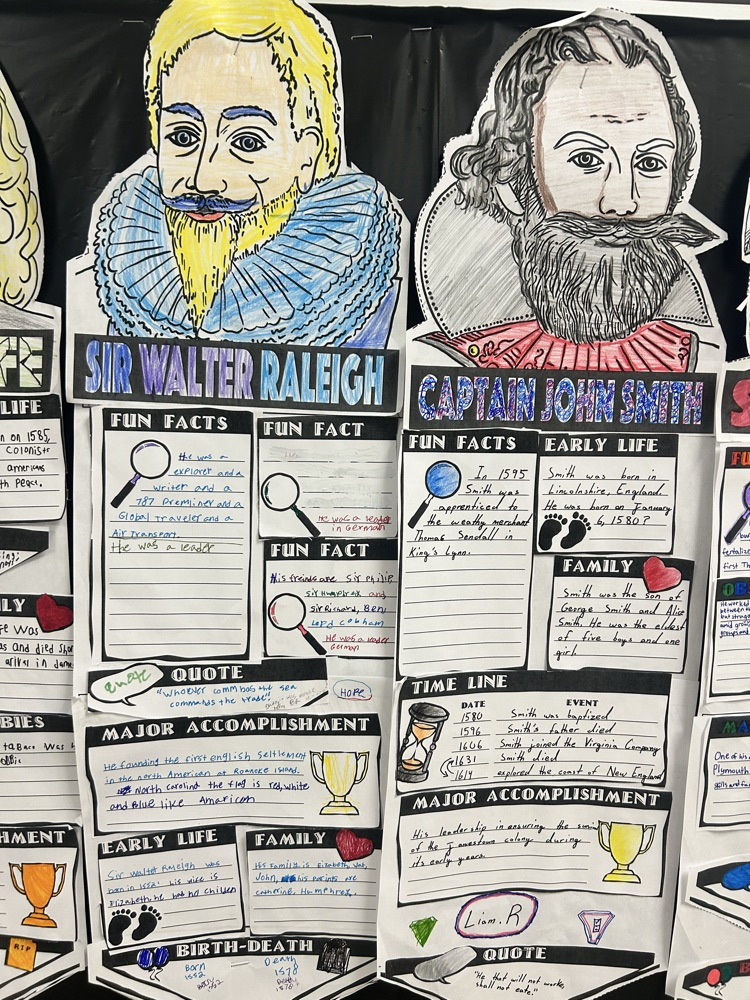 SIR WALTER RALEIGH
FUN FACTS
He was a
explorer and a
writer and a
787 Premliner and a
Global Traveler and a
Air Transport.
He was a leader
FUN FACT
He was a leader
in German
FUN FACT
His freinds are Sir Philip
Sir Humphrey and
Sir Richard, Ben,
Lord Cobham
He was a leader
German
QUOTE
quote
"Whoever commbas the sea
commands the trade"
HOPE
MAJOR ACCOMPLISHMENT
He founding the first english settlement
in the north American at Roanoke Island.
North Carolina the flag is red, white
and Blue like American
EARLY LIFE
Sir Walter Raleigh was
born in 1552. his wife is
Elizabeth. he has no children
FAMILY
His Family is Elizabeth,
John, his parints are
catherine, Humphrey.
BIRTH-DEATH
Born
1552
Death
1578
CAPTAIN JOHN SMITH
FUN FACTS
In 1595
Smith was
apprenticed to
the weathy merchant
Thomas Sendall in
King's Lynn.
EARLY LIFE
Smith was born in
Lincolnshire, England.
He was born on January
6, 1580?
FAMILY
Smith was the son of
George Smith and Alice
Smith. He was the eldest
of five boys and one
girl.
TIME LINE
DATE EVENT
1580 Smith was baptized
1596 Smith's father died
1606 Smith joined the Virginia Company
1631 Smith died
1614 explored the coast of New England
MAJOR ACCOMPLISHMENT
His leadership in ensuring the
of the Jamestown colony during
its early years.
Liam.R
QUOTE
"He that will not work,
shall not eate."
FE
LIFE
n on 1585,
Colonist
americans
th Peace.
LY
fe was
as and died shor
arives in Jame
BIES
HMENT
RIP
One of his
Plymouth